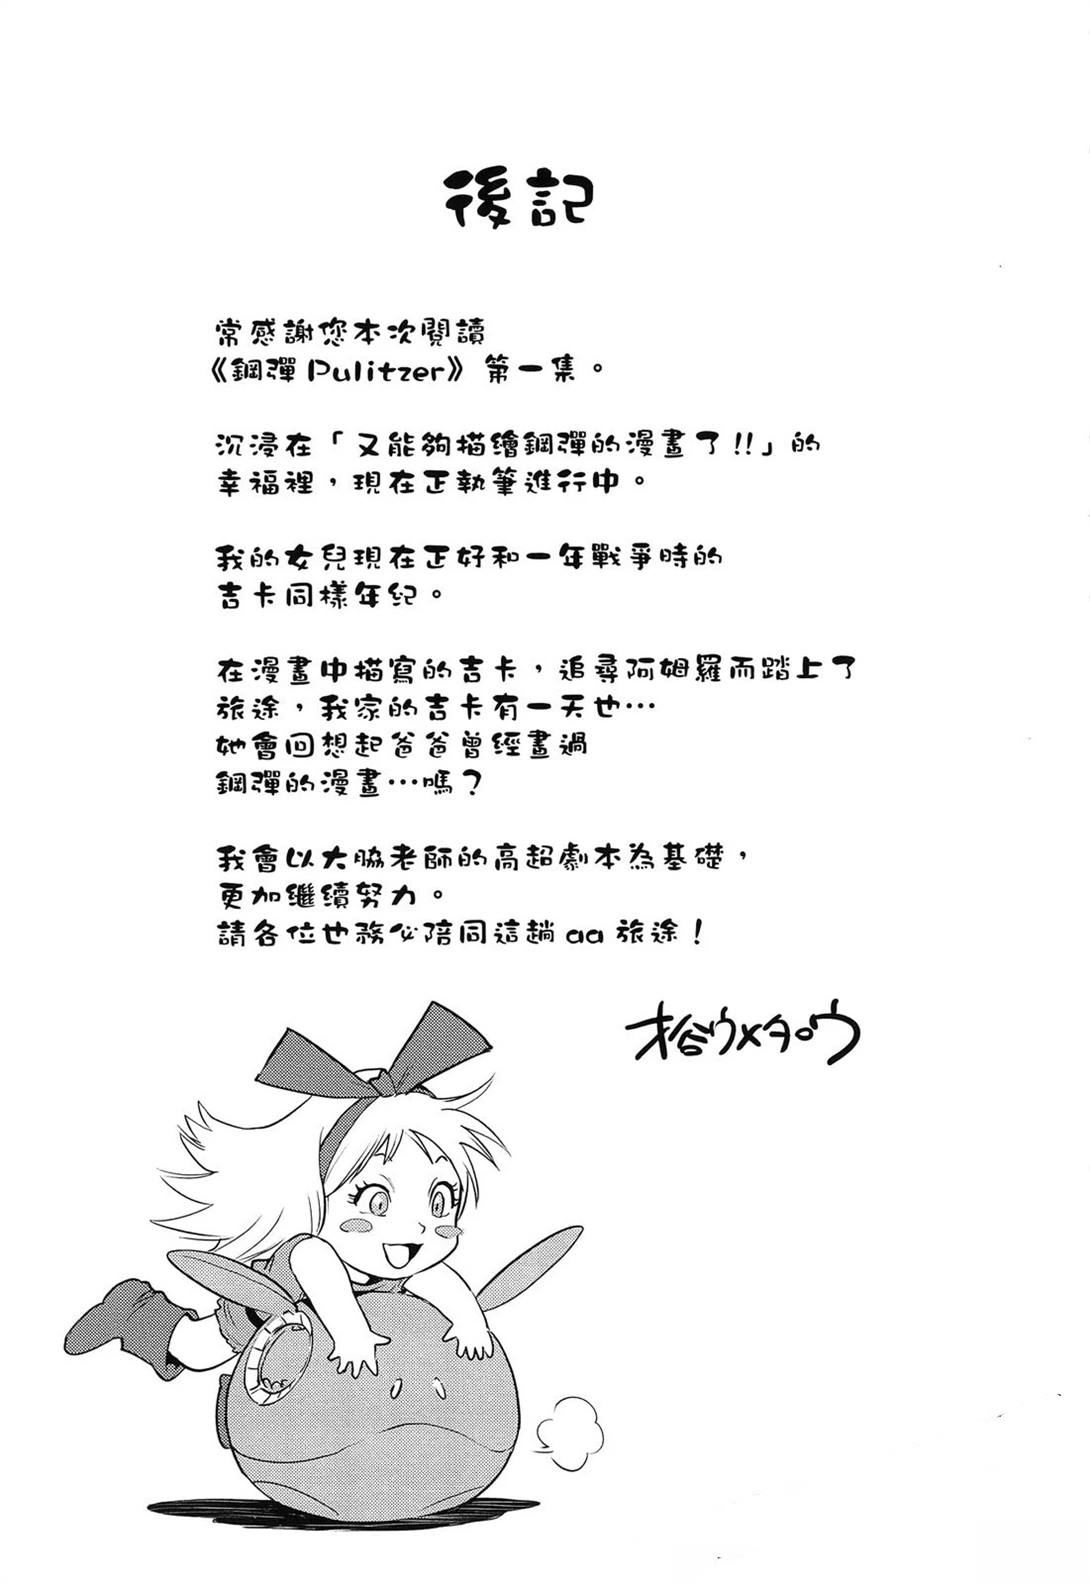 後記
常感謝您本次閱讀
《鋼彈Pulitzer》第一集。
沉浸在「又能夠描繪鋼彈的漫畫了!!」的
幸福裡，現在正執筆進行中。
我的女兒現在正好和一年戰爭時的
吉卡同樣年紀。
在漫畫中描寫的吉卡，追尋阿姆羅而踏上了
旅途，我家的吉卡有一天也…
她會回想起爸爸曾經畫過
鋼彈的漫畫…嗎？
我會以大脇老師的高超劇本為基礎，
更加繼續努力。
請各位也務必陪同這趟aa旅途！
才谷ウメタロウ